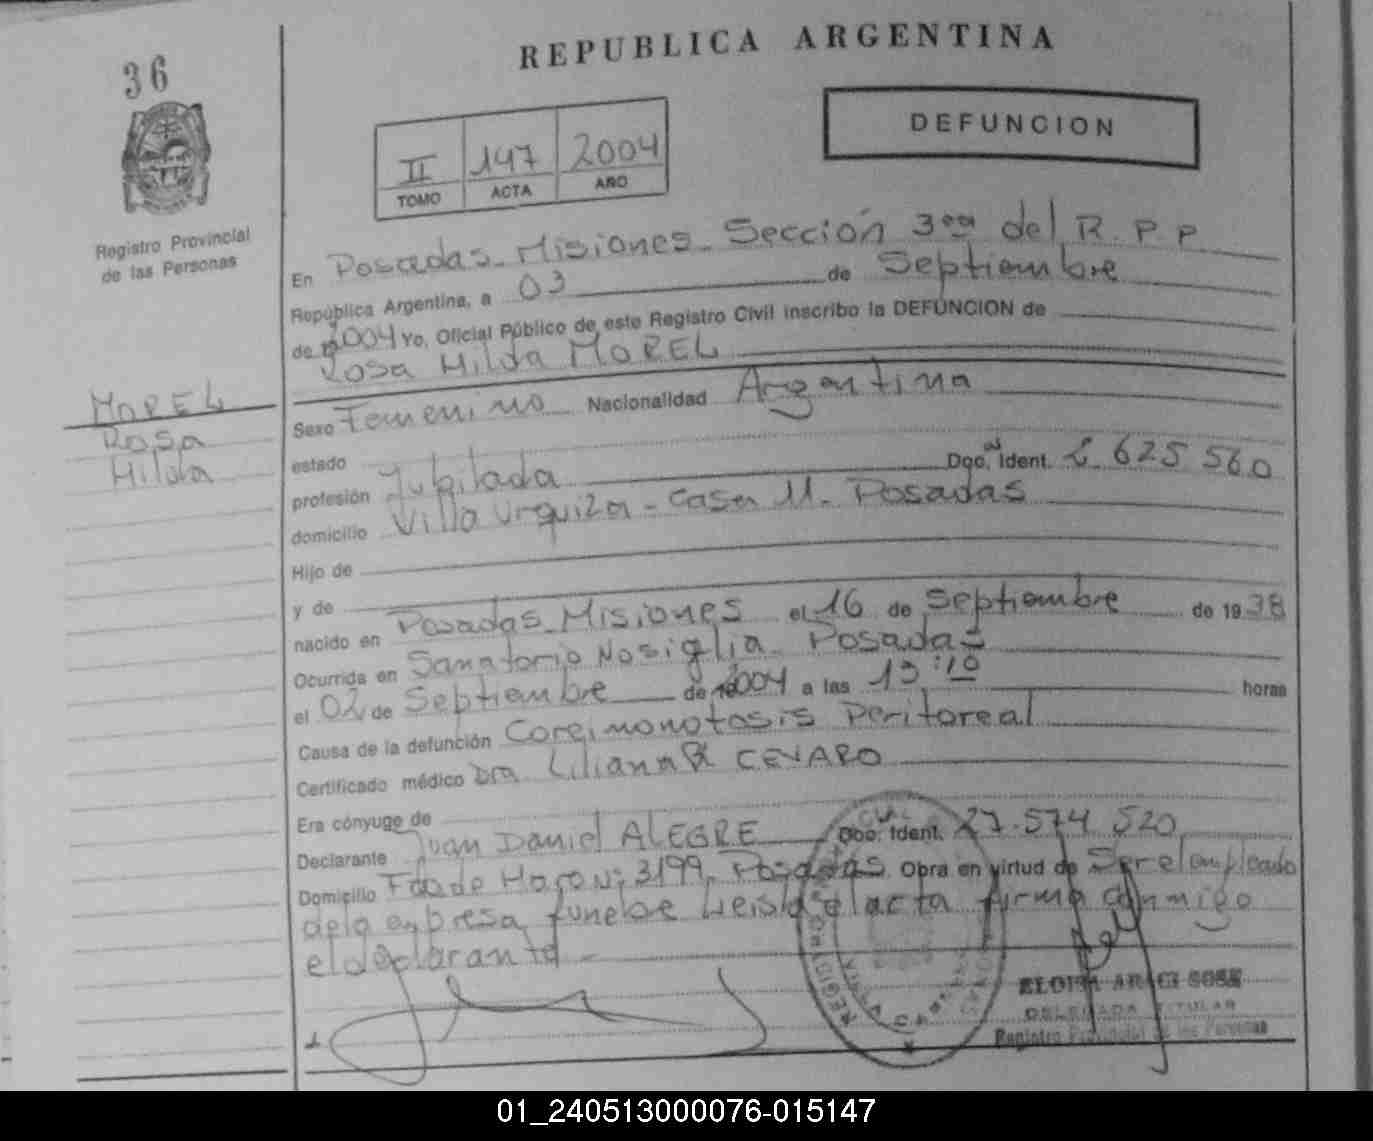 36
REPUBLICA ARGENTINA
DEFUNCION
II 147 2004
TOMO ACTA AÑO
Registro Provincial
de las Personas
En Posadas Misiones Sección 3era del R.P.P
República Argentina, a 03 de Septiembre
de 2004 Yo, Oficial Público de este Registro Civil inscribo la DEFUNCION de
Rosa Hilda MOREL
MOREL
Rosa
Hilda
Sexo Femenino Nacionalidad Argentina
estado
profesión Jubilada Doc. Ident. 2 625 560
domicilio Villa Urquiza - Casa 11. Posadas
Hijo de
y de
nacido en Posadas Misiones el 16 de Septiembre de 1938
Ocurrida en Sanatorio Nosiglia Posadas
el 02 de Septiembre de 2004 a las 13:10 horas
Causa de la defunción Coreimonotosis Peritoreal
Certificado médico Dra Liliana CEVARO
Era cónyuge de
Declarante Juan Daniel ALEGRE Doc. Ident. 27.574 520
Domicilio Fdo de Haro Nº 3199. Posadas Obra en virtud de Ser el empleado
de la epresa funebre Leida el acta firma conmigo
el declarante
ELOISA ARACI SOSA
DELEGADA TITULAR
Registro Provincial de las Personas
01_240513000076-015147